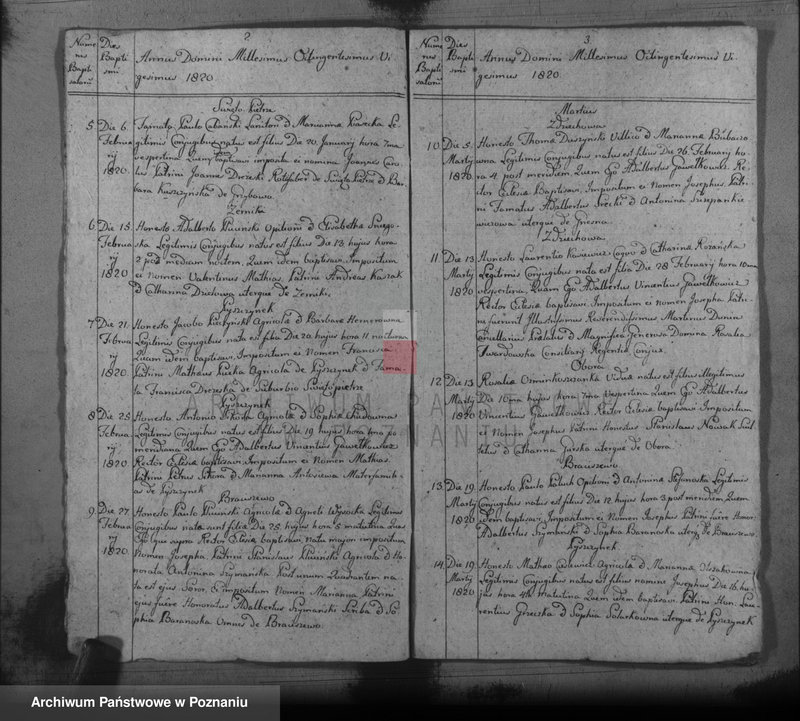 2.
Nume
rus
Bapti
satorũ
Dies
Bapti
smi
Annus Domini Millesimus Octingentesimus Vi
gesimus 1820.
Święto Pietrze
5. Die 6.
Februa
rij
1820.
Famato Paulo Cabański d Marianna Piasecka Le
gitimis Conjugibus natus est filius Die 20. January hora 7ma
vespertina Quem baptisavi imposita ei nomina Joannes
Patrini Joannes Drzeski de Święto Pietrze d Bar
bara de Grzybowo.
Zerniki
6. Die 15.
Februa
rij
1820
Honesto Adalberto d Elisabetha
Legitimis Conjugibus natus est filius Die 13. hujus hora
2 post mediam noctem, Quem idem baptisavi, Impositum
ei nomen Valentinus Mathias, Patrini Andreas Kaszak
d Catharina uterque de Zerniki.
Pyszczynek
7. Die 21.
Februa
rij
1820
Honesto Jacobo Agricola d Barbara
Legitimis Conjugibus nata est filia Die 20. hujus hora 11 nocturna
Quam idem baptisavi, Impositum ei Nomen Francisca
Patrini Matheus Agricola de Pyszczynek d Fama
ta Francisca Drzeska de Suburbio Święto Pietrze
Pyszczynek
8. Die 25.
Februa
rij
1820
Honesto Antonio Sikora Agricola d Sophia
Legitimis Conjugibus natus est filius Die 19 hujus hora
meridiana Quem Ego Adalbertus Vincentius Gawełkiewicz
Rector Eclesiæ baptisavi, Impositum ei Nomen Mathias.
Patrini Petrus Sikora d Marianna Antosiewa Materfamili
as de Pyszczynek
Braciszewo
9. Die 27.
Februa
rij
1820.
Honesto Paulo Agricola d Agneti Wysocka Legitimis
Conjugibus nata sunt filia Die 25 hujus hora 5 matutina
Ego qui supra Rector Eclesiæ baptisavi, natu major impositum
Nomen Josepha Patrini Stanislaus Agricola d Ho
norata Antonina Szymańska Post unum Quadrantem na
ta est ejus Soror, & impositum Nomen Marianna Patrini
ejus fuere Honoratus Adalbertus Szymański Scriba d So
phia Baranoska Omnes de Braciszewo.
3.
Nume
rus
Bapti
satorũ
Dies
Bapti
smi
Annus Domini Millesimus Octingentesimus Vi
gesimus 1820.
Martius
Zdziechowa
10. Die 5.
Marty
1820
Honesto Thoma Duszyński Villico d Marianna
Legitimis Conjugibus natus est filius Die 26. Februarij ho
ra 4 post meridiem, Quem Ego Adalbertus Gawełkiewicz Re
ctor Eclesiæ Baptisavi, Impositum ei Nomen Josephus, Patri
ni Famatus Adalbertus d Antonina
uterque de Gnesna.
Zdziechowa.
11. Die 13
Marty
1820
Honesto Laurentio Kasiewicz Coquo d Catharina Rozańska
Legitimis Conjugibus nata est filia Die 28 Februarij hora 10ma
vespertina, Quam Ego Adalbertus Vincentius Gawełkiewicz
Rector Eclesiæ baptisavi, Impositum ei nomen Josepha Patri
ni fuerunt Illustrissimus Reverendissimus Martinus Dunin
Consiliarius Prælatus d Magnifica Generosa Domina Rosalia
Twardowska Consiliarij Regentis Conjux.
Obora
12. Die 13
Marty
1820
Rosalia Vidua natus est filius illegitimus
Die 10ma hujus hora 7ma vespertina Quem Ego Adalbertus
Vincentius Gawełkiewicz Rector Eclesiæ baptisavi Impositum
ei Nomen Josephus Patrini Honestus Stanislaus Nowak
d Catharina Górska uterque de Obora.
Braciszewo.
13. Die 19.
Marty
1820
Honesto Paulo Opilioni d Antonina Legitimis
Conjugibus natus est filius Die 12 hujus hora 3 post meridiem, Quem
idem baptisavi, Impositum ei Nomen Josephus Patrini fuere Honor:
Adalbertus Szymański d Sophia Baranoska uterque de Braciszewo
Pyszczynek.
14. Die 19.
Marty
1820
Honesto Matheo Agricola d Marianna
Legitimis Conjugibus natus est filius nomine Josephus Die 16. hu
jus hora 4ta matutina Quem idem baptisavi Patrini Hon: Lau
rentius d Sophia uterque de Pyszczynek
Archiwum Państwowe w Poznaniu